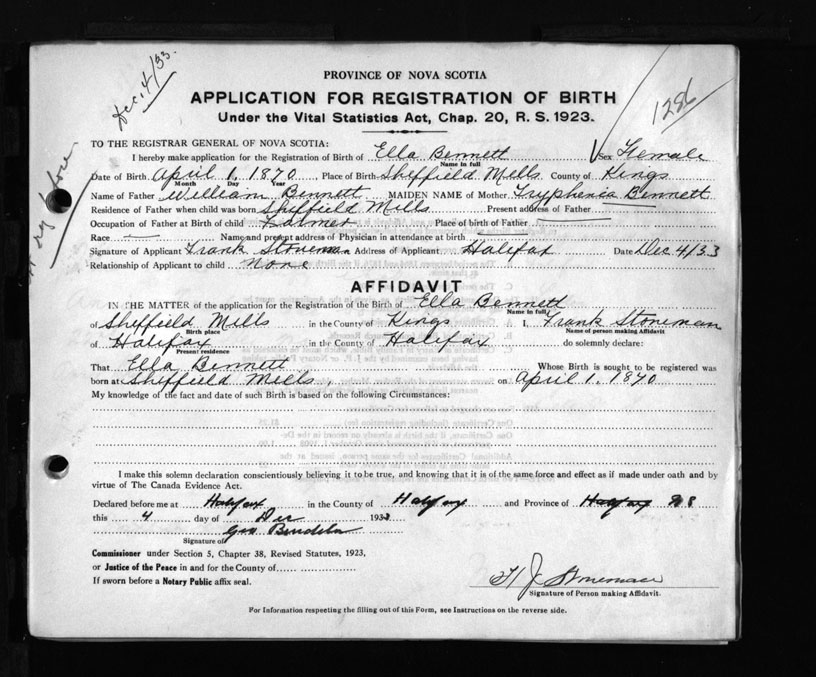 Dec. 4/33.
PROVINCE OF NOVA SCOTIA
APPLICATION FOR REGISTRATION OF BIRTH
Under the Vital Statistics Act, Chap. 20, R. S. 1923.
1286
TO THE REGISTRAR GENERAL OF NOVA SCOTIA:
I hereby make application for the Registration of Birth of Ella Bennett Sex Female
Name in full
Date of Birth April 1, 1870 Place of Birth Sheffield Mills County of Kings
Month Day Year
Name of Father William Bennett MAIDEN NAME of Mother Tryphenia Bennett
Residence of Father when child was born Sheffield Mills Present address of Father
Occupation of Father at Birth of child Farmer Place of birth of Father
Race Name and present address of Physician in attendance at birth
Signature of Applicant Frank Stoneman Address of Applicant Halifax Date Dec 4/33
Relationship of Applicant to child None
AFFIDAVIT
IN THE MATTER of the application for the Registration of the Birth of Ella Bennett
Name in full
of Sheffield Mills in the County of Kings I, Frank Stoneman
Birth place Name of person making Affidavit
of Halifax in the County of Halifax do solemnly declare:
Present residence
That Ella Bennett Whose Birth is sought to be registered was
born at Sheffield Mills, on April 1. 1870
My knowledge of the fact and date of such Birth is based on the following Circumstances:
I make this solemn declaration conscientiously believing it to be true, and knowing that it is of the same force and effect as if made under oath and by
virtue of The Canada Evidence Act.
Declared before me at Halifax in the County of Halifax and Province of Halifax NS
this 4 day of Dec 1933
Geo
Signature of
Commissioner under Section 5, Chapter 38, Revised Statutes, 1923,
or Justice of the Peace in and for the County of
If sworn before a Notary Public affix seal.
J Stoneman
Signature of Person making Affidavit.
For Information respecting the filling out of this Form, see Instructions on the reverse side.